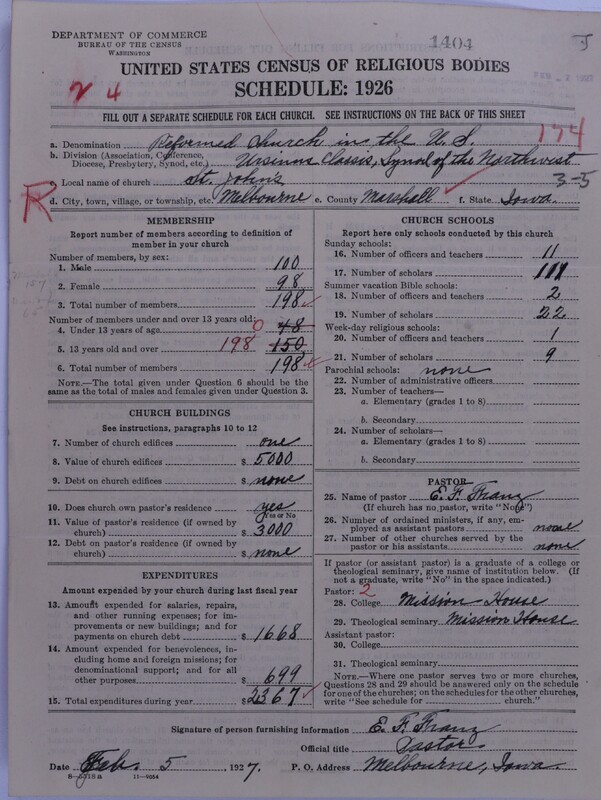 DEPARTMENT OF COMMERCE
BUREAU OF THE CENSUS
WASHINGTON
1404
J
UNITED STATES CENSUS OF RELIGIOUS BODIES
SCHEDULE: 1926
24
FILL OUT A SEPARATE SCHEDULE FOR EACH CHURCH. SEE INSTRUCTIONS ON THE BACK OF THIS SHEET
174
a. Denomination Reformed Church in the U. S.
b. Division (Association, Conference, Diocese, Presbytery, Synod, etc.) Ursinus Classis, Synod of the Northwest
c. Local name of church St. John's
3-5
R
d. City, town, village, or township, etc. Melbourne e. County Marshall f. State Iowa.
MEMBERSHIP
Report number of members according to definition of
member in your church
Number of members, by sex:
1. Male 100
2. Female 98
3. Total number of members 198
Number of members under and over 13 years old:
4. Under 13 years of age 0 48
5. 13 years old and over 198 150
6. Total number of members 198
NOTE.—The total given under Question 6 should be the
same as the total of males and females given under Question 3.
CHURCH BUILDINGS
See instructions, paragraphs 10 to 12
7. Number of church edifices one
8. Value of church edifices $ 5000
9. Debt on church edifices $ none
10. Does church own pastor's residence yes
Yes or No
11. Value of pastor's residence (if owned by
church) $ 3000
12. Debt on pastor's residence (if owned by
church) $ none
EXPENDITURES
Amount expended by your church during last fiscal year
13. Amount expended for salaries, repairs,
and other running expenses; for im-
provements or new buildings; and for
payments on church debt $ 1668
14. Amount expended for benevolences, in-
cluding home and foreign missions; for
denominational support; and for all
other purposes $ 699
15. Total expenditures during year $ 2367
CHURCH SCHOOLS
Report here only schools conducted by this church
Sunday schools:
16. Number of officers and teachers 11
17. Number of scholars 111
Summer vacation Bible schools:
18. Number of officers and teachers 2
19. Number of scholars 22
Week-day religious schools:
20. Number of officers and teachers 1
21. Number of scholars 9
Parochial schools: none
22. Number of administrative officers
23. Number of teachers—
a. Elementary (grades 1 to 8)
b. Secondary
24. Number of scholars—
a. Elementary (grades 1 to 8)
b. Secondary
PASTOR
25. Name of pastor E. F. Franz
(If church has no pastor, write "None")
26. Number of ordained ministers, if any, em-
ployed as assistant pastors none
27. Number of other churches served by the
pastor or his assistants none
If pastor (or assistant pastor) is a graduate of a college or
theological seminary, give name of institution below. (If
not a graduate, write "No" in the space indicated.)
Pastor: 2
28. College Mission House
29. Theological seminary Mission House
Assistant pastor:
30. College
31. Theological seminary
NOTE.—Where one pastor serves two or more churches,
Questions 28 and 29 should be answered only on the schedule
for one of the churches; on the schedules for the other churches,
write "See schedule for church."
Signature of person furnishing information E. F. Franz
Official title Pastor
Date Feb. 5, 1927. P. O. Address Melbourne, Iowa.
11—9064